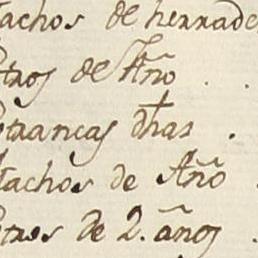 tachos de herrade
otros de Año . .
otrancas dhas .
tachos de Año .
otros de 2. años .